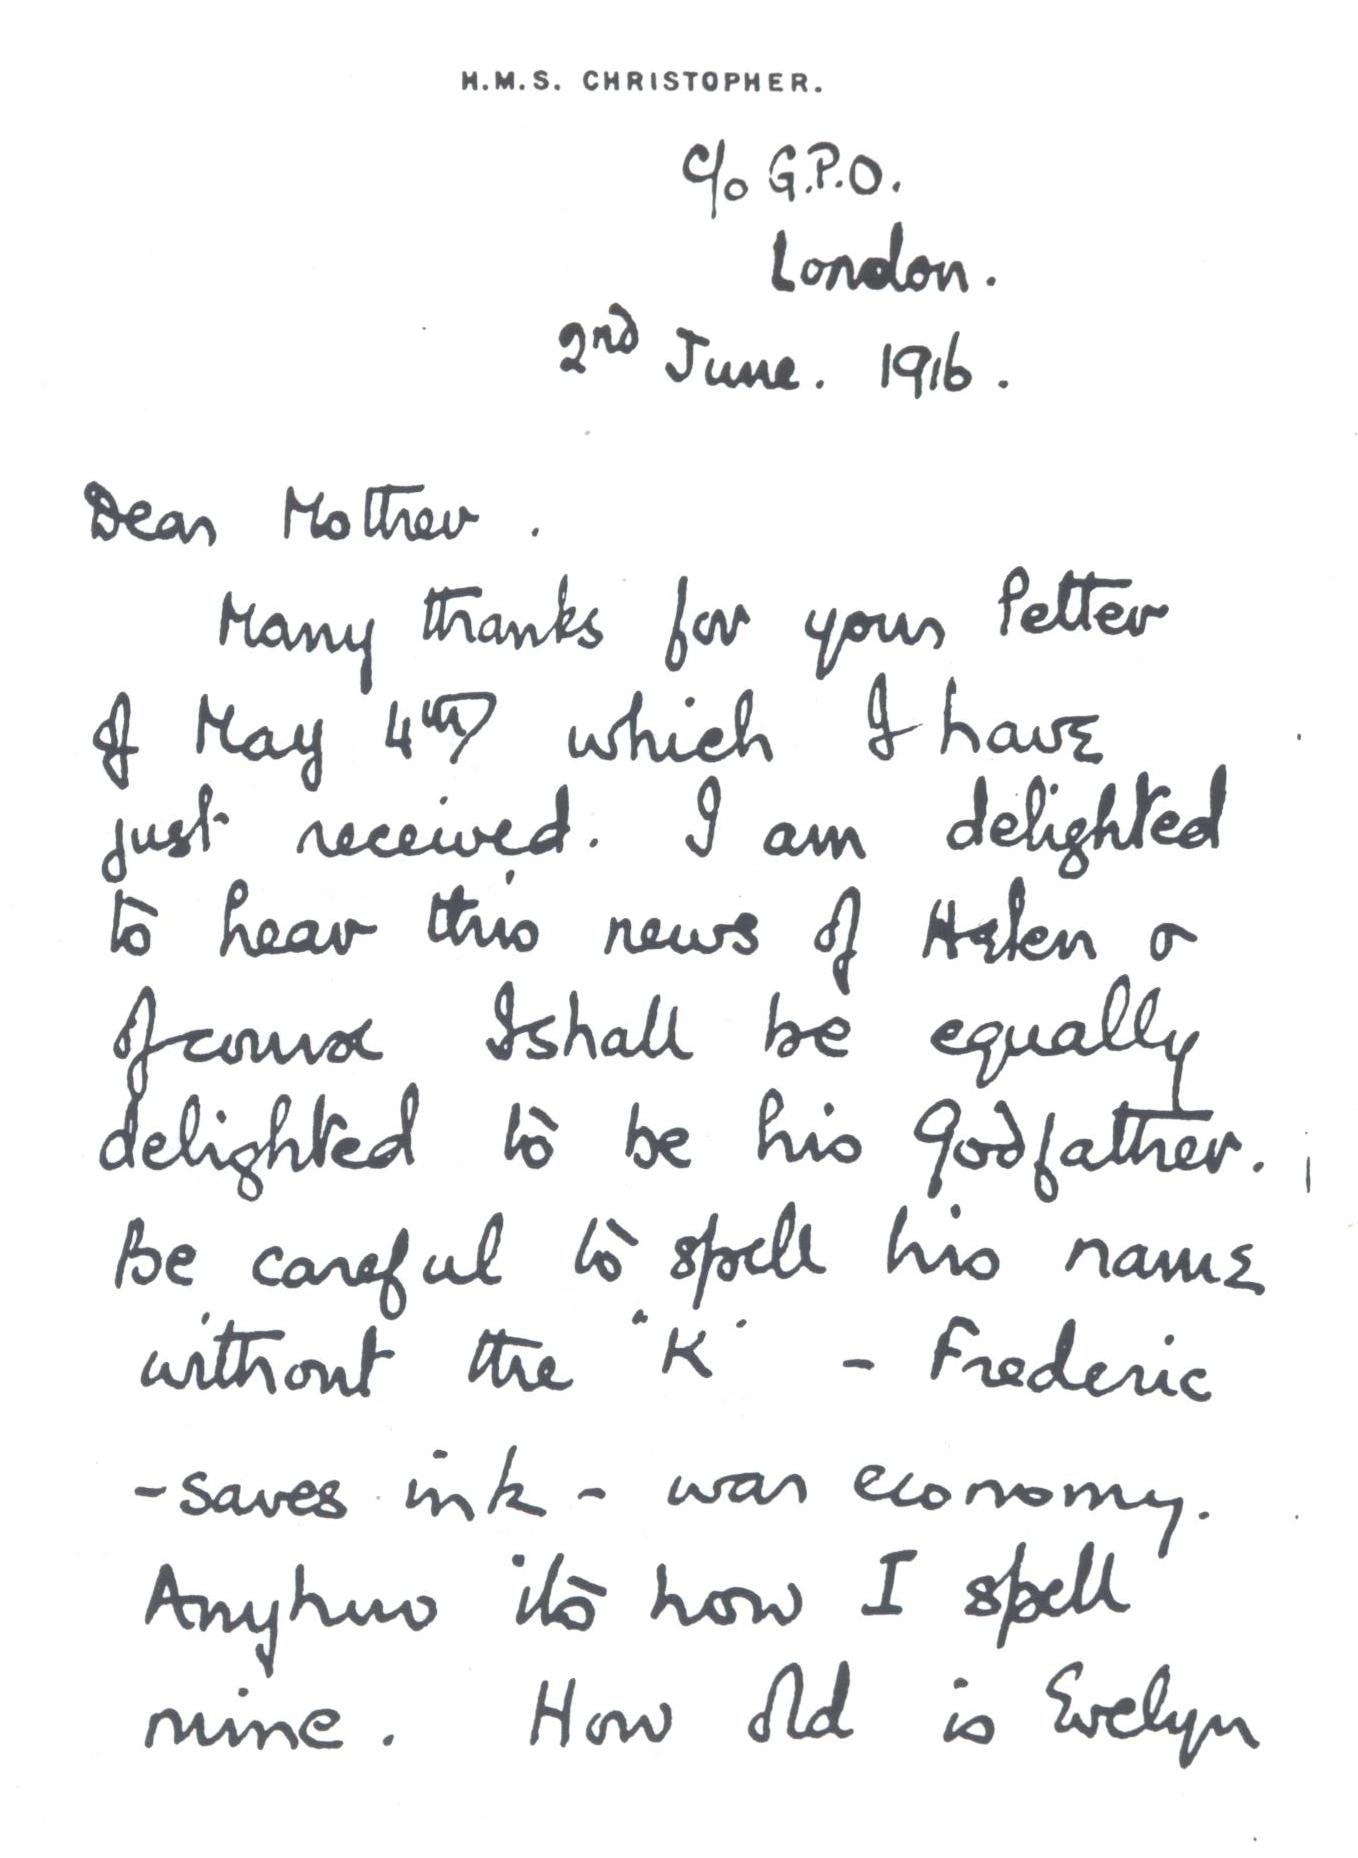 H.M.S. CHRISTOPHER.
c/o G.P.O.
London.
2nd June. 1916.
Dear Mother.
Many thanks for your letter
of May 4th which I have
just received. I am delighted
to hear this news of Helen &
of course I shall be equally
delighted to be his Godfather.
Be careful to spell his name
without the "K" - Frederic
- saves ink - war economy.
Anyhow its how I spell
mine. How old is Evelyn